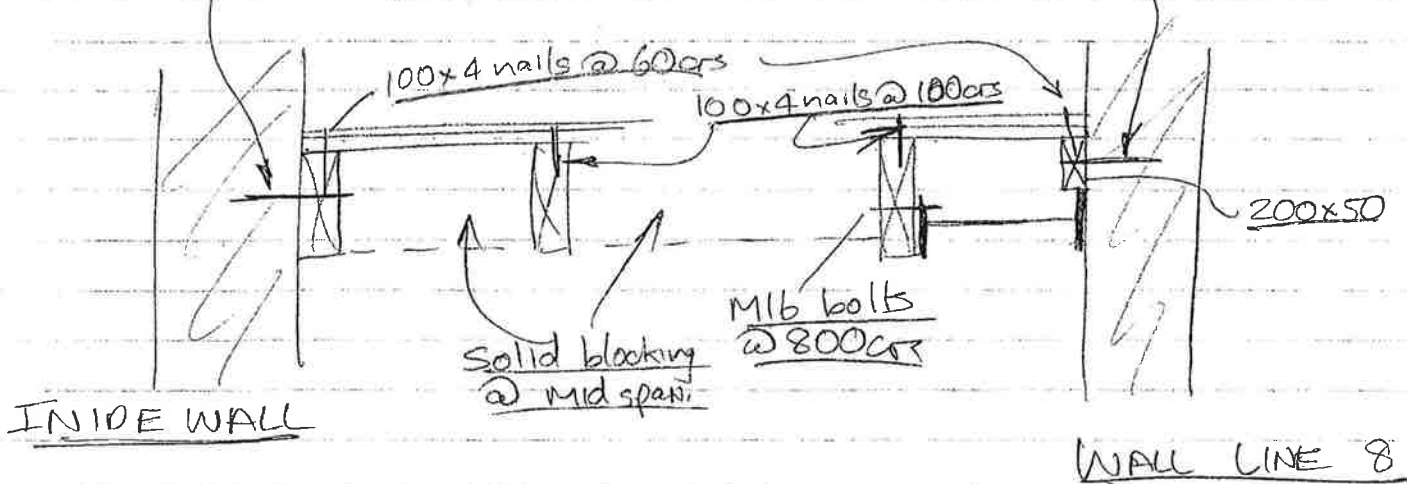 100x4 nails @ 60crs
100x4 nails @ 100crs
200x50
M16 bolts
@ 800crs
Solid blocking
@ mid span.
INIDE WALL
WALL LINE 8